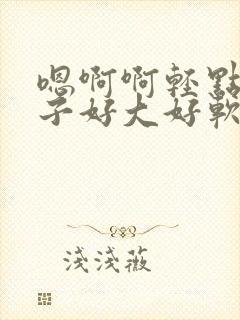 嗯啊啊輕點
子好大好軟
淺淺薇